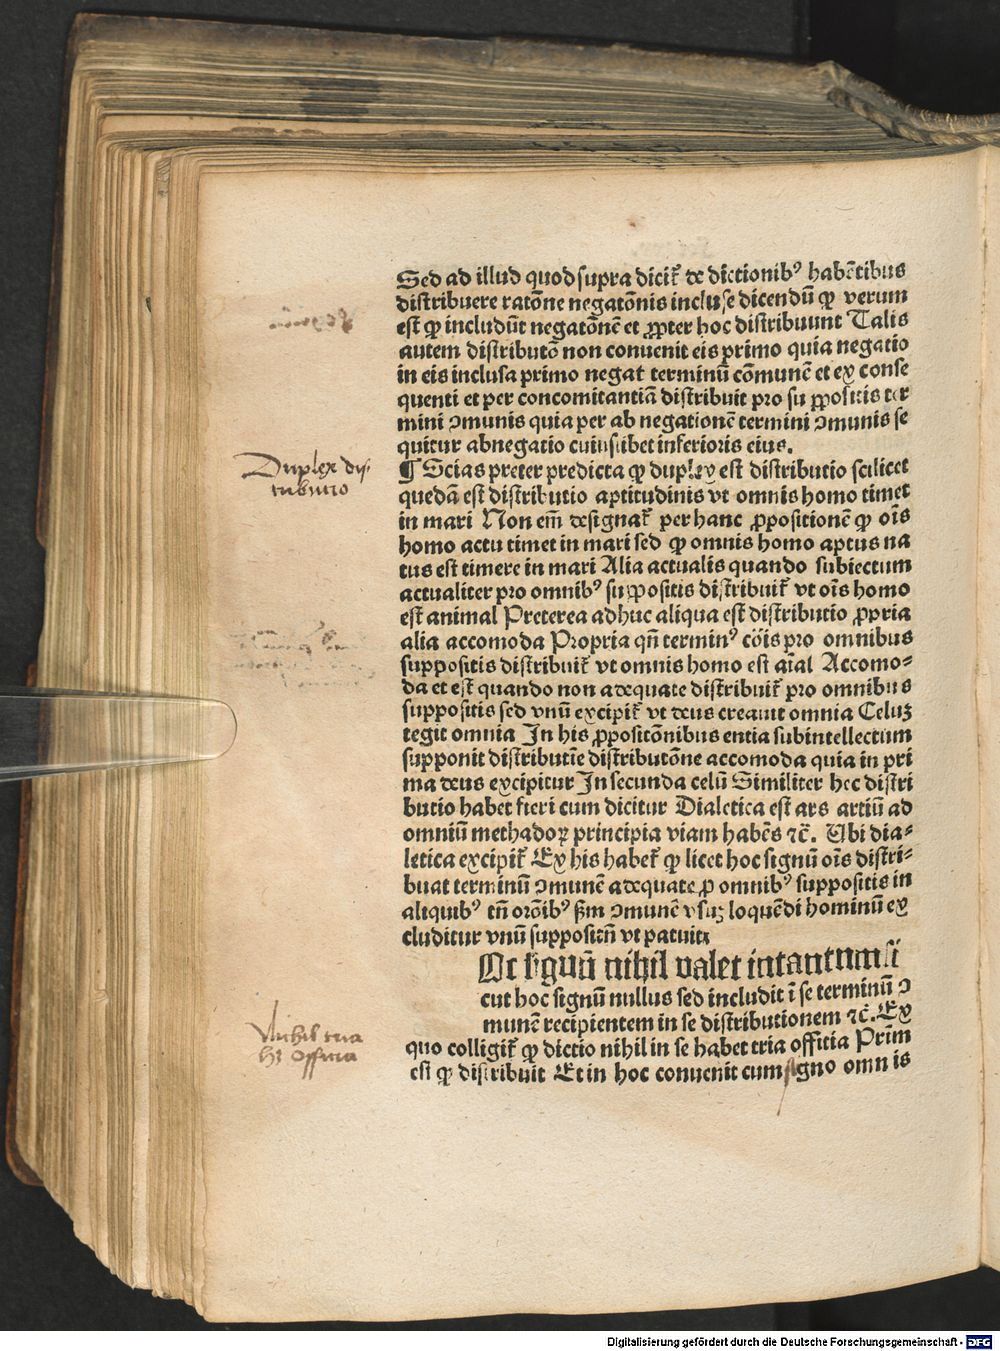 Sed ad illud quod supra dicit᷑ de dictionibꝰ habētibus
distribuere ratōne negatōnis incluse dicendū ꝙ verum
est ꝙ includūt negatōnē et ꝓpter hoc distribuunt Talis
autem distributō non conuenit eis primo quia negatio
in eis inclusa primo negat terminū cōmunē et ex conse
quenti et per concomitantiā distribuit pro su ꝓpositis ter
mini ↄmunis quia per ab negationē termini ↄmunis se
quitur abnegatio cuiuslibet inferioris eius.
¶ Scias preter predicta ꝙ duplex est distributio scilicet
quedā est distributio aptitudinis vt omnis homo timet
in mari Non em̄ designat᷑ per hanc ꝓpositionē ꝙ oīs
homo actu timet in mari sed ꝙ omnis homo aptus na
tus est timere in mari Alia actualis quando subiectum
actualiter pro omnibꝰ suppositis distribuit᷑ vt oīs homo
est animal Preterea adhuc aliqua est distributio ꝓpria
alia accomoda Propria qn̄ terminꝰ cōis pro omnibus
suppositis distribuit᷑ vt omnis homo est aīal Accomo⸗
da et est quando non adequate distribuit᷑ pro omnibus
suppositis sed vnū excipit᷑ vt deus creauit omnia Celuꝫ
tegit omnia In his ꝓpositōnibus entia subintellectum
supponit distributiē distributōne accomoda quia in pri
ma deus excipitur In secunda celū Similiter hec distri
butio habet fieri cum dicitur Dialetica est ars artiū ad
omniū methadoꝝ principia viam habēs ⁊c̄. Ubi dia⸗
letica excipit᷑ Ex his habet᷑ ꝙ licet hoc signū oīs distri⸗
buat terminū ↄmunē adequate ꝓ omnibꝰ suppositis in
aliquibꝰ tn̄ orōibꝰ ẜm ↄmunē vsuꝫ loquēdi hominū ex
cluditur vnū suppositū vt patuit
Et signū nihil valet intantum si
cut hoc signū nullus sed includit ī se terminū ↄ
munē recipientem in se distributionem ⁊c̄. Ex
quo colligit᷑ ꝙ dictio nihil in se habet tria officia Primū
est ꝙ distribuit Et in hoc conuenit cum signo omnis
Duplex dis⸗
tributio
Nichil tria
hꝫ officia
Digitalisierung gefördert durch die Deutsche Forschungsgemeinschaft - DFG